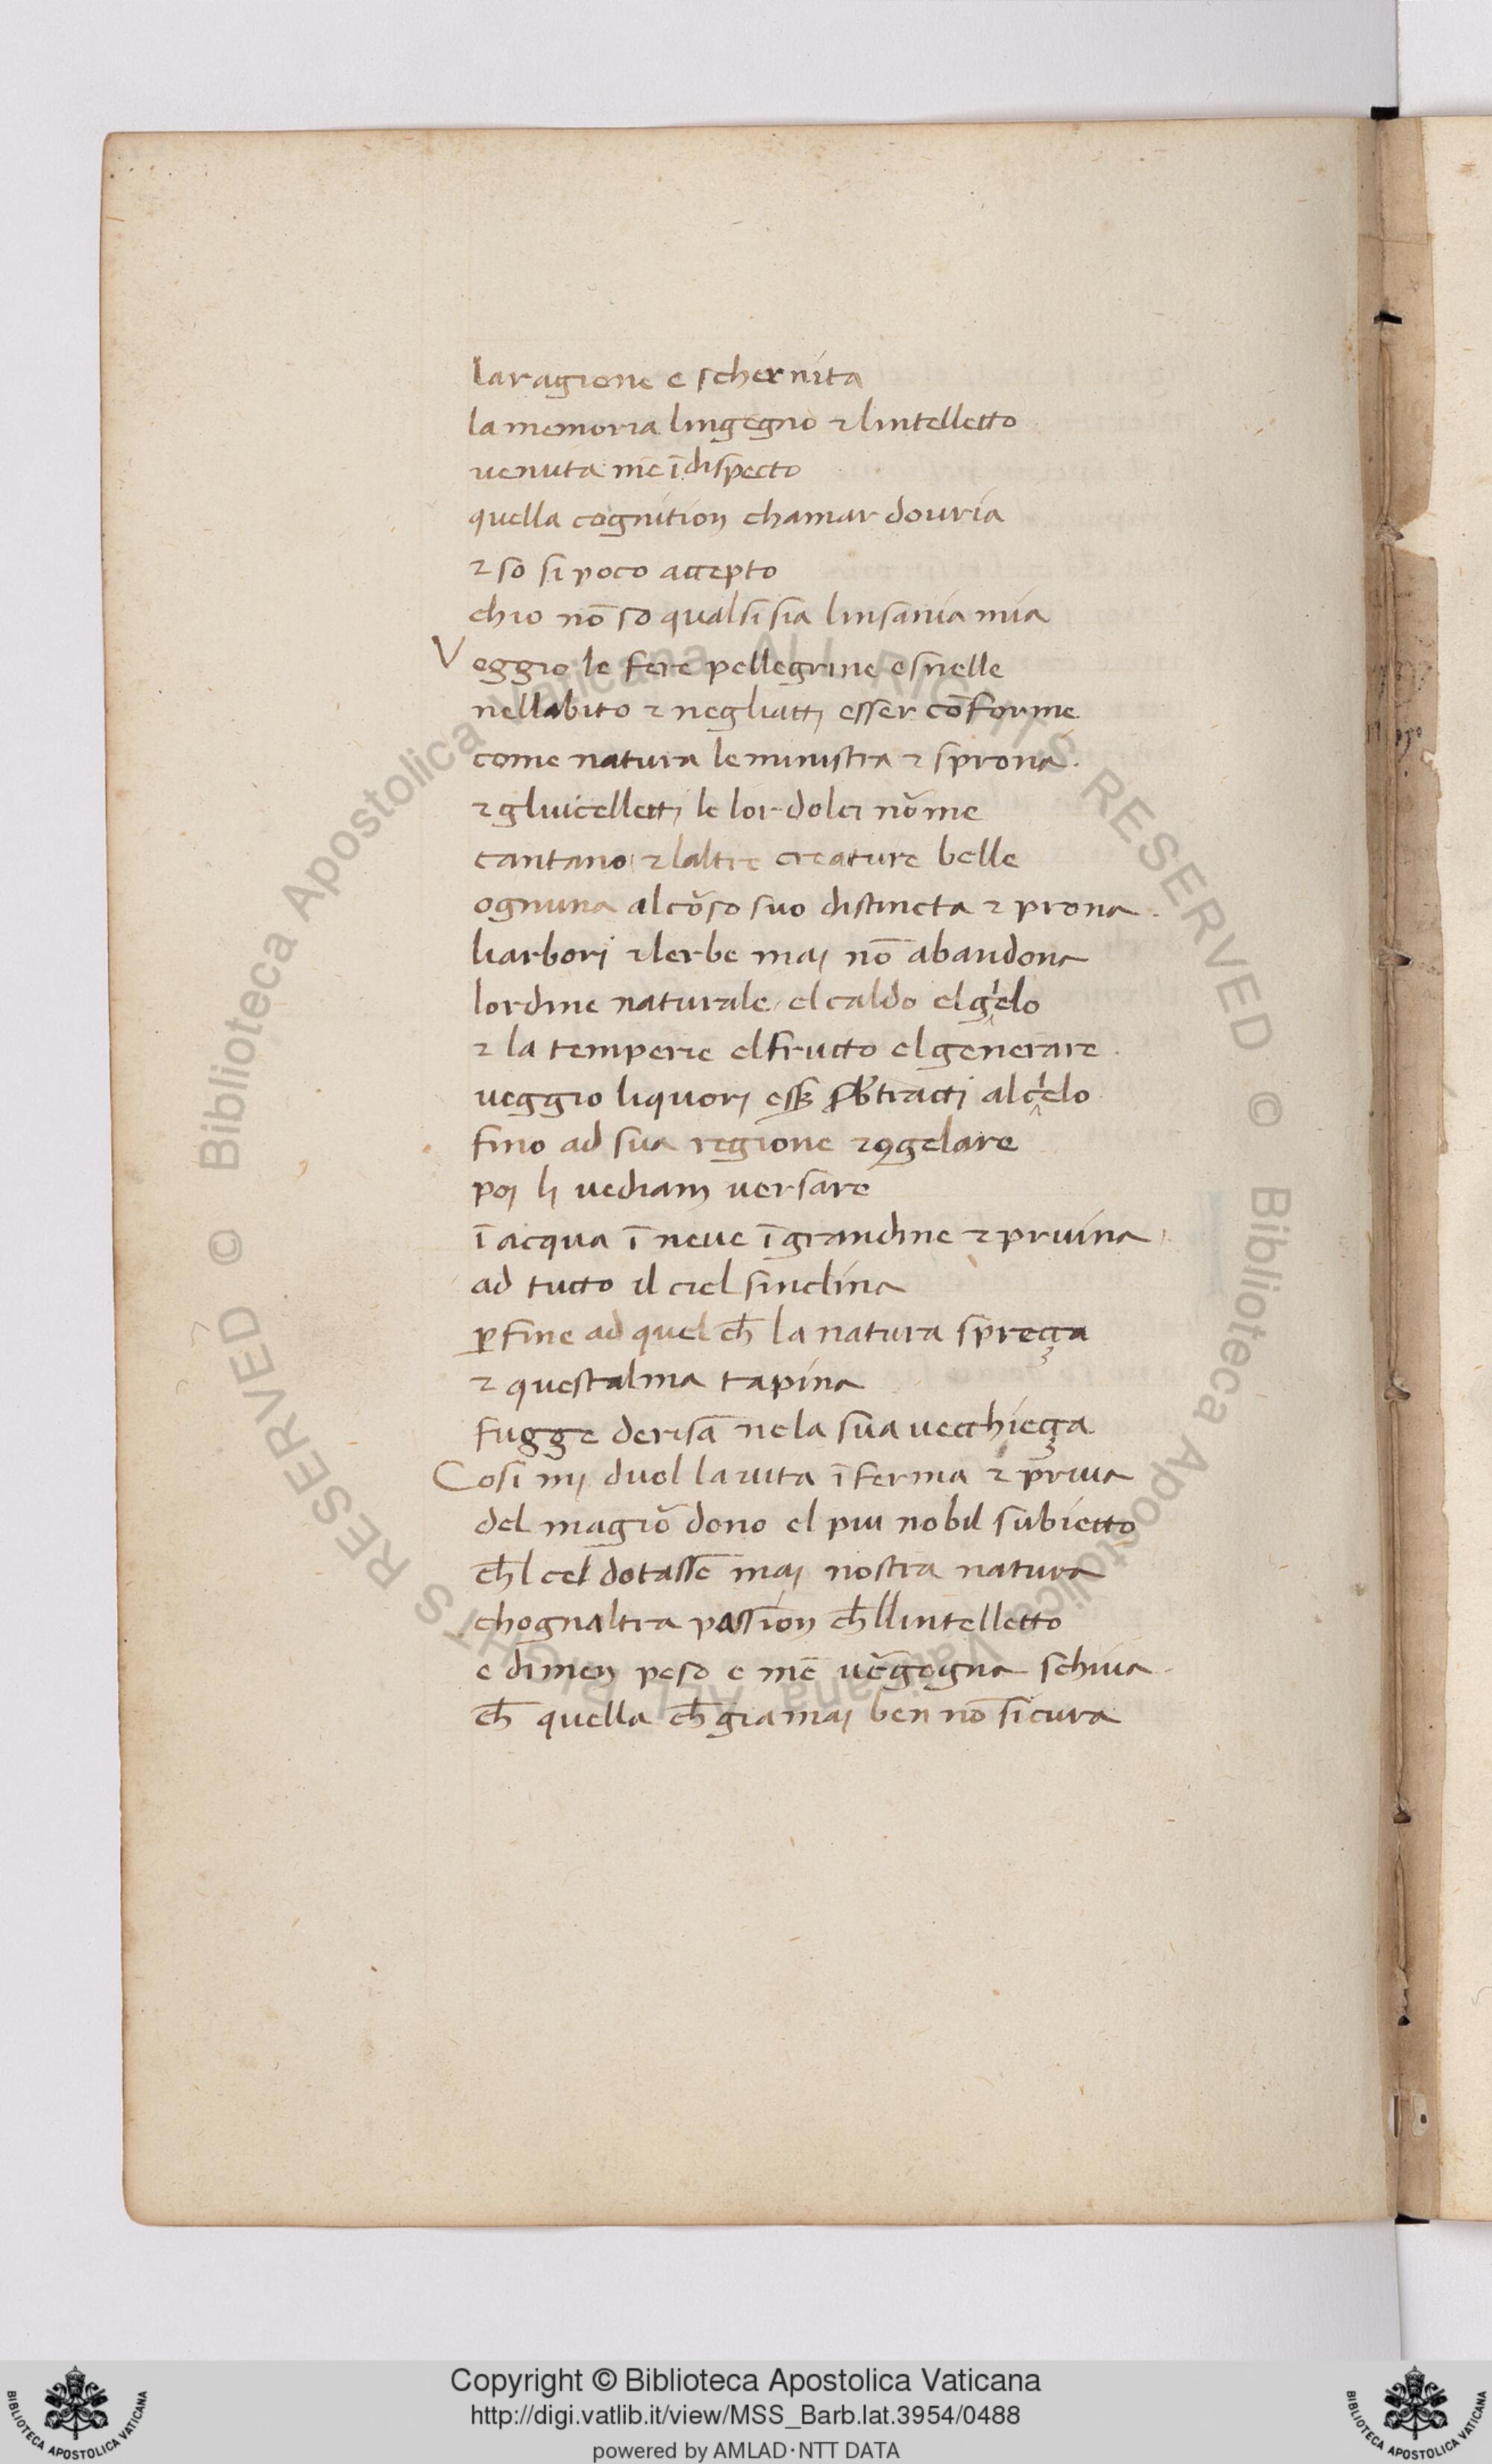 la ragione e schernita
la memoria lingegno ⁊ lintelletto
uenuta me ī dispecto
quella cognition chamar douria
⁊ so si poco accepto
chio nō so qual si sia linsania mia
Veggio le fere pellegrine e snelle
nellabito ⁊ negliattj esser cōforme
come natura le ministra ⁊ sprona.
⁊ gliuicellettj le lor dolci nōme
cantano ⁊ laltre creature belle
ognuna al cōso suo distincta ⁊ prona.
liarborj ⁊ lerbe maj nō abandona
lordine naturale el caldo el gielo
⁊ la temperie el fructo el generare.
ueggio liquorj tractj al cielo
fino ad sua regione ⁊ ꝯgelare
poj lj uediam uersare
ī acqua ī neue ī grandine ⁊ pruina
ad tutto il ciel sinclina
ꝑfine ad quel cħ la natura spreça
⁊ questalma tapina
fugge derisa ne la sua uecchieça
Cosi mj duol la uita īferma ⁊ priua
del magiō dono el piu nobil subietto
cħl cel dotasse maj nostra natura
chognaltra passion cħ llintelletto
e di men peso e mē uēgogna schiua.
cħ quella cħ gia maj ben nō sicura
© Biblioteca Apostolica Vaticana ALL RIGHTS RESERVED © Biblioteca Apostolica Vaticana ALL RIGHTS RESERVED
BIBLIOTECA APOSTOLICA VATICANA
Copyright © Biblioteca Apostolica Vaticana
http://digi.vatlib.it/view/MSS_Barb.lat.3954/0488
powered by AMLAD·NTT DATA
BIBLIOTECA APOSTOLICA VATICANA